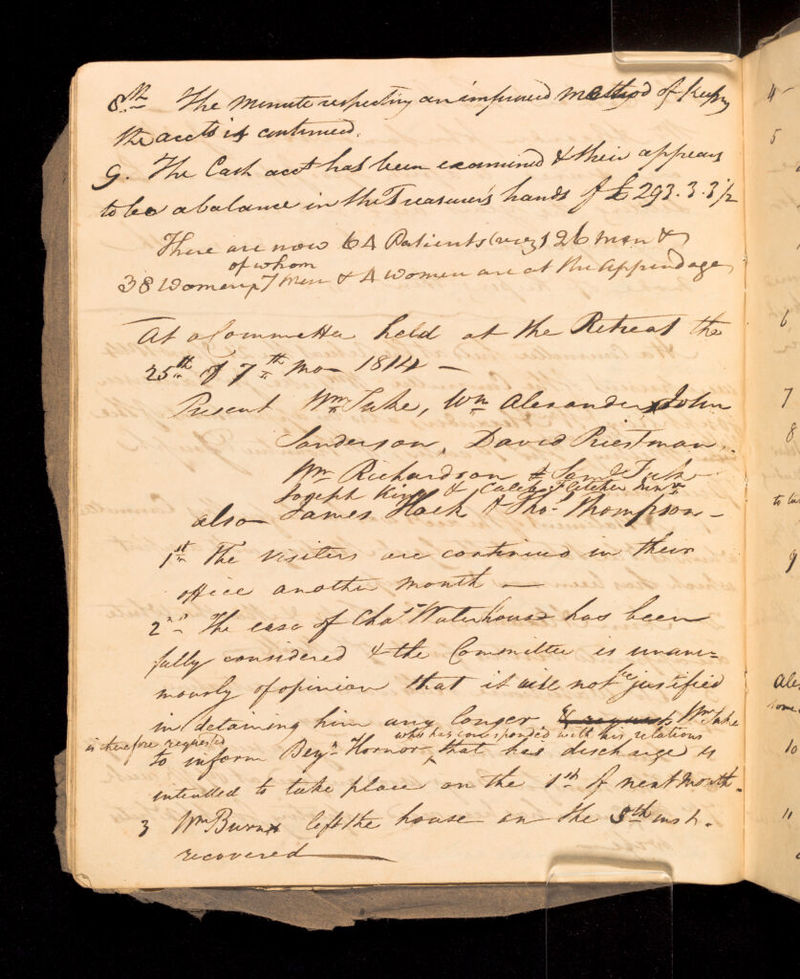 8th The Minute respecting an improved method of keeping
the accts is continued.
9. The Cash acct has been examined & their appears
to be a balance in the Treasurer's hands of £293.3.3½
There are now 64 Patients (viz) 26 men &
of whom
38 Women, 7 Men & 4 women are at the Appendage
At a Committee held at the Retreat the
25th of 7th Mo 1814 —
Present Wm Tuke, Wm Alexander, John
Sanderson, David Priestman
Wm Richardson & Saml Tuke
Joseph King & Caleb Fletcher Junr
also James Hack & Thos Thompson —
1st The visiters are continued in their
office another month —
2nd The case of Chas Waterhouse has been
fully considered & the Committee is unani=
mously of opinion that it will not be justified
in detaining him any longer & requests Wm Tuke
is therefore requested who has corresponded with his relations
to inform Benjn Hornor that his discharge is
intended to take place on the 1st of next month.
3 Wm Burn left the house on the 5th inst.
recovered —
4
5
6
7
8
to
9
10
11